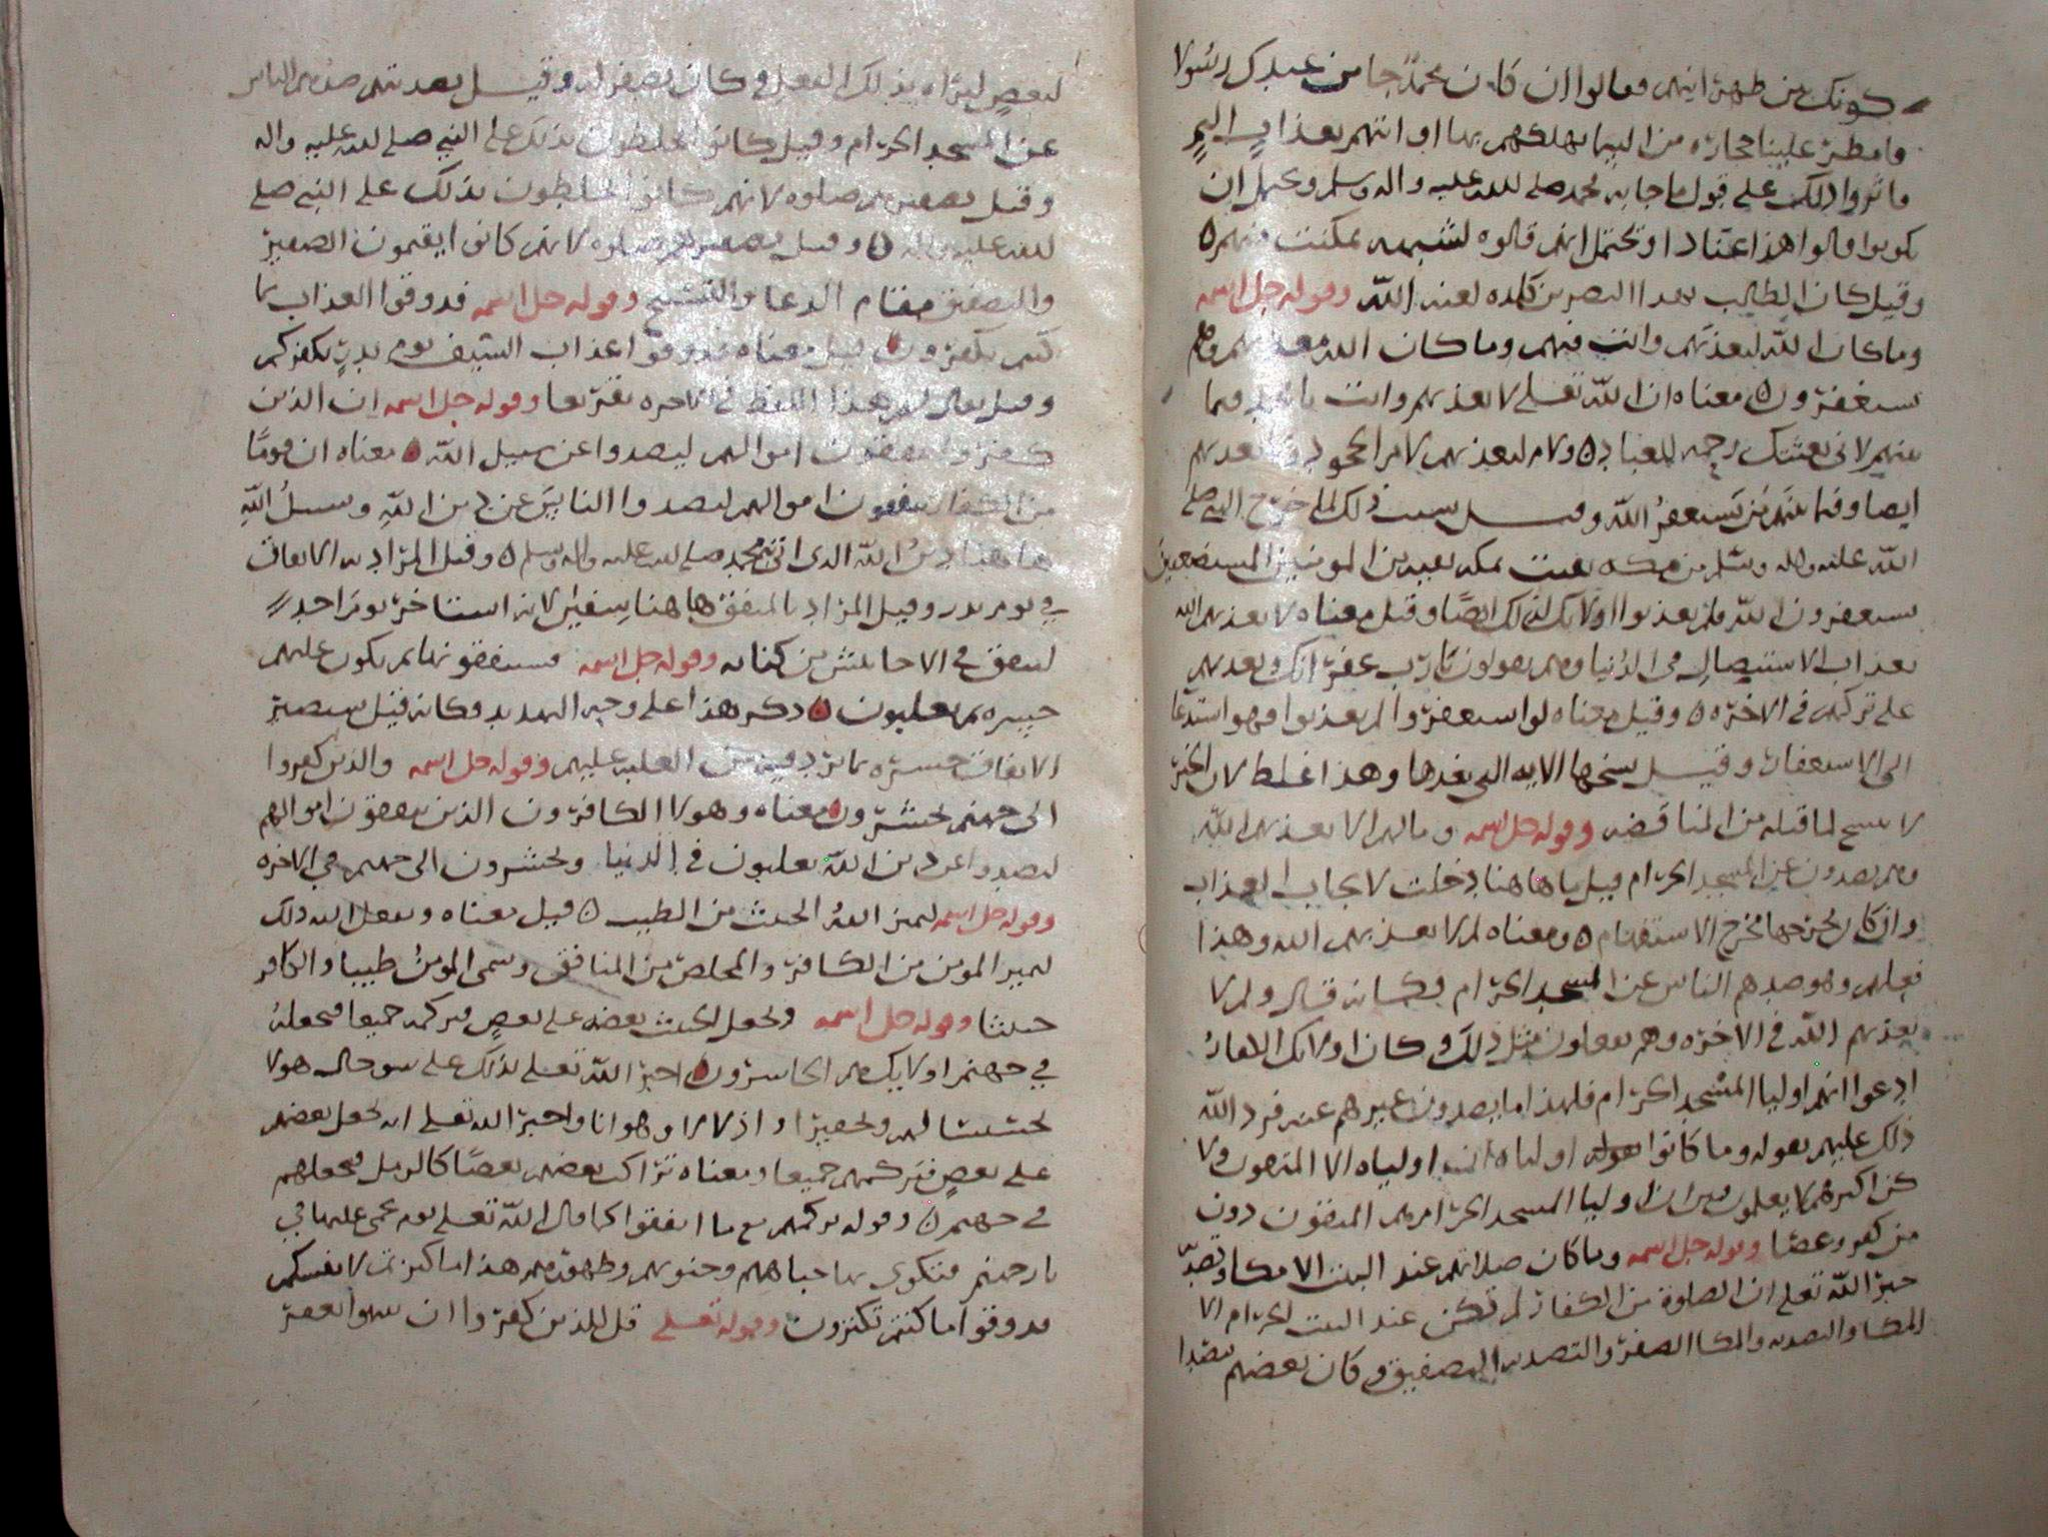 كونك من طهرانيهم فقالوا ان كان محمد جا من عندك رسولا
فامطر علينا حجارة من السما تهلكهم بها او ائتهم بعذاب اليم
فاثروا ذلك على قول ما جا به محمد صلى الله عليه واله وسلم ويحتمل ان
يكونوا قالوا هذا عنادا وتحتمل انهم قالوه لشبهه تمكنت منهم
وقيل كان الطالب لهذا النضر بن كلده لعنه الله وقوله جل اسمه
وما كان الله ليعذبهم وانت فيهم وما كان الله معذبهم وهم
يستغفرون معناه ان الله تعلى لا يعذبهم وانت يا محمد فيما
بينهم لاني بعثتك رحمه للعباد ولا يعذبهم
ايضا وفيما بينهم من يستغفر الله وقيل سبب ذلك لما خرج النبي صلى
الله عليه واله وسلم من مكه بقيت بمكه بقيه من المومنين المستضعفين
يستغفرون الله فلم يعذبوا اولايك لذلك ايضا وقيل معناه لا يعذبهم الله
بعذاب الاستيصال في الدنيا وهم يقولون يا رب غفرانك ويعذبهم
على شركهم في الاخره وقيل معناه لو استغفروا لم يعذبوا فهو استدعا
الى الاستغفار وقيل نسختها الايه التي بعدها وهذا غلط لان الخبر
لا ينسخ لما فيه من المناقضه وقوله جل اسمه وما لهم الا يعذبهم الله
وهم يصدون عن المسجد الحرام قيل ما هاهنا دخلت لايجاب العذاب
وان كان يخرجها مخرج الاستفهام ومعناه لم لا يعذبهم الله وهذا
فعلهم وهو صدهم الناس عن المسجد الحرام فكانه قال ولم لا
يعذبهم الله في الاخره وهم يفعلون مثل ذلك وكان اولايك الكفار
ادعوا انهم اوليا المسجد الحرام فلهذا ما يصدون غيرهم عنه فرد الله
ذلك عليهم بقوله وما كانوا اولياه ان اولياه الا المتقون ولا
كن اكثرهم لا يعلمون فبين ان اوليا المسجد الحرام هم المتقون دون
من كفر وعصا وقوله جل اسمه وما كان صلاتهم عند البيت الا مكا وتصديه
خبر الله تعلى ان الصلوة من الكفار لم تكن عند البيت الحرام الا
المكا والتصديه والمكا الصفير والتصديه التصفيق وكان بعضهم يتصدا
لبعض ليراه بذلك الفعل وكان يصفر له وقيل تصديتهم صدهم الناس
عن المسجد الحرام وقيل كانوا يخلطون بذلك على النبي صلى الله عليه واله
وقيل تصفيرهم صلوه لانهم كانوا يخلطون بذلك على النبي صلى
الله عليه واله وقيل تصفيرهم صلوه لانهم كانوا يقيمون الصفير
والتصفيق مقام الدعا والتسبيح وقوله جل اسمه فذوقوا العذاب بما
كنتم تكفرون قيل معناه فذوقوا عذاب السيف يوم بدر بكفركم
وقيل يقال لهم هذا اللفظ في الاخره تقريعا وقوله جل اسمه ان الذين
كفروا ينفقون اموالهم ليصدوا عن سبيل الله معناه ان قوما
من الكفار ينفقون اموالهم ليصدوا الناس عن دين الله وسبيل الله
هاهنا دين الله الذي اتى به محمد صلى الله عليه واله وسلم وقيل المراد به الانفاق
في يوم بدر وقيل المراد بالمنفق هاهنا سفين لانه استاجر يوم احد
لينفق في الاحابيش من كنانه وقوله جل اسمه فسينفقونها ثم تكون عليهم
حسره ثم يغلبون ذكر هذا على وجه التهديد وكانه قيل سيصير
الانفاق حسره بما تردفه من الغلبه عليهم وقوله جل اسمه والذين كفروا
الى جهنم يحشرون معناه وهولا الكافرون الذين ينفقون اموالهم
ليصدوا عن دين الله يغلبون في الدنيا ويحشرون الى جهنم في الاخره
وقوله جل اسمه ليميز الله الخبيث من الطيب قيل معناه ويفعل الله ذلك
ليميز المومن من الكافر والمخلص من المنافق وسمى المومن طيبا والكافر
خبيثا وقوله جل اسمه ويجعل الخبيث بعضه على بعض فيركمه جميعا فيجعله
في جهنم اولايك هم الخاسرون اخبر الله تعلى بذلك على سو حال هولا
تخسيسا لهم وتحقيرا واذلالا وهوانا واخبر الله تعلى انه يجعل بعضهم
على بعض فيركمهم جميعا ومعناه تراكب بعضهم بعضا كالرمل فيجعلهم
في جهنم وقوله يركمهم مع ما انفقوا كما قال الله تعلى يوم يحمى عليها في
نار جهنم فتكوى بها جباههم وجنوبهم وظهورهم هذا ما كنزتم لانفسكم
فذوقوا ما كنتم تكنزون وقوله تعلى قل للذين كفروا ان ينتهوا يغفر